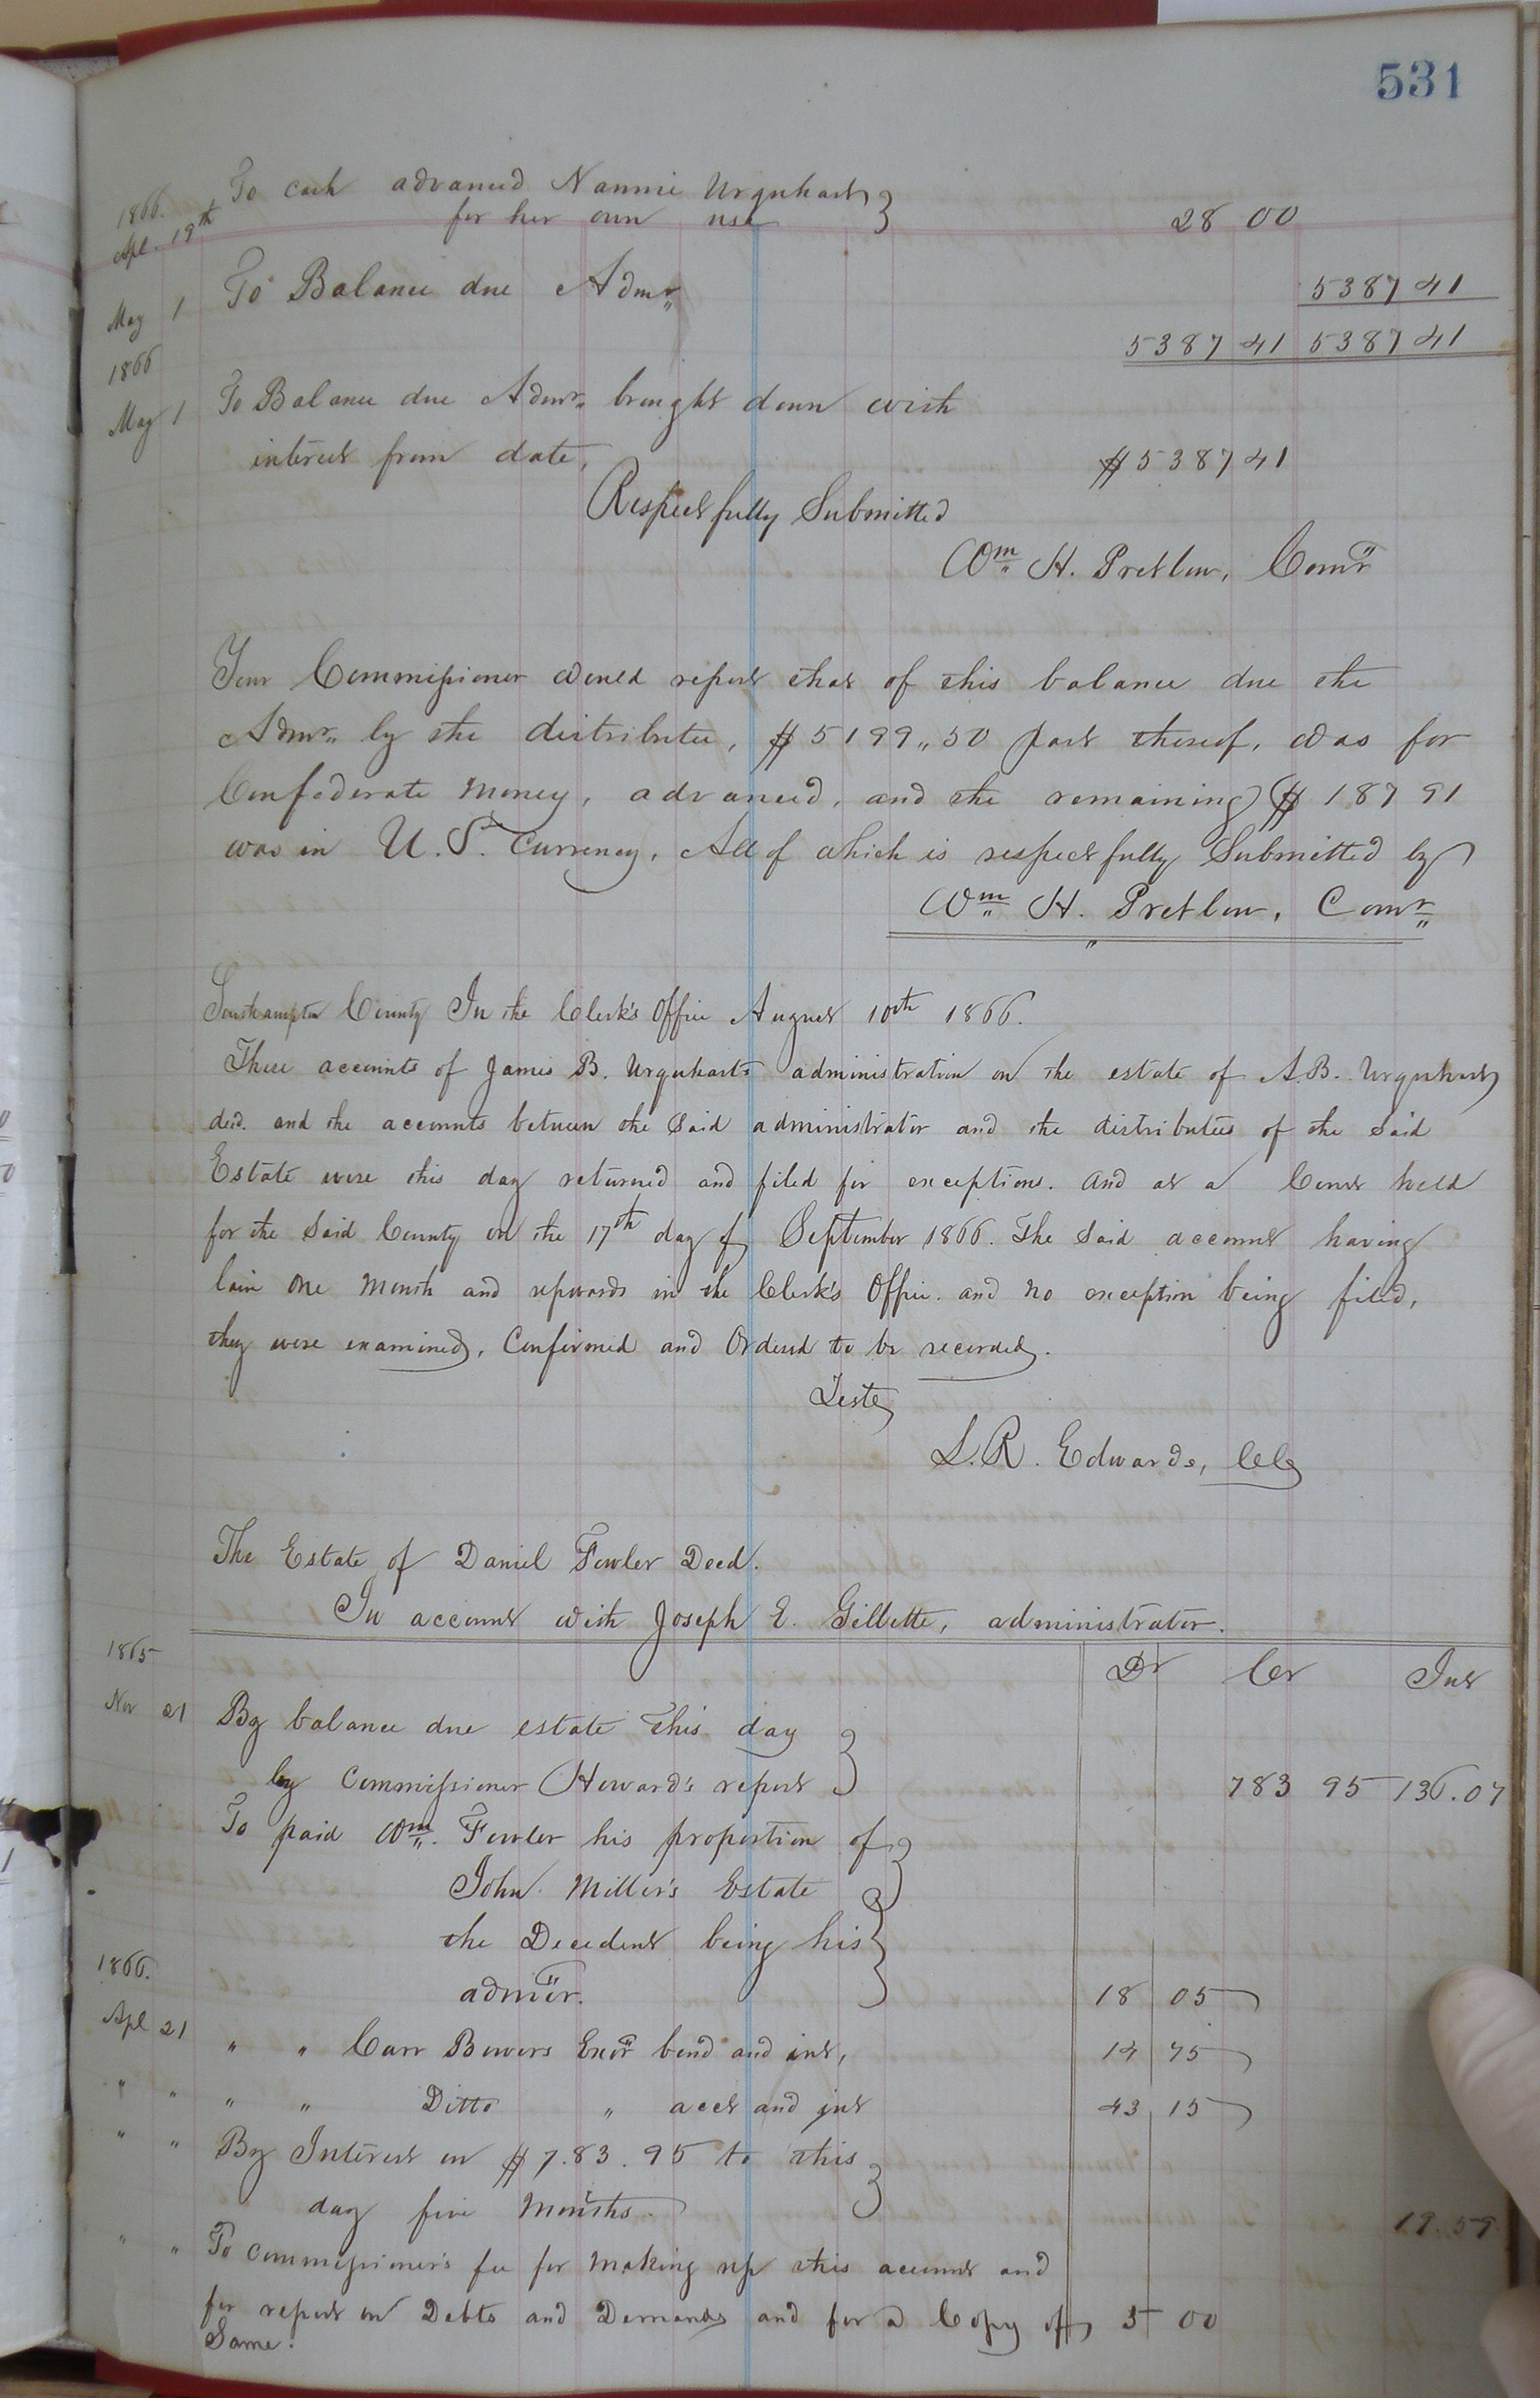 531
1866. Apl. 19th To cash advanced Nannie Urquhart
for her own use 28 00
May 1 To Balance due Admr. 5387 41
5387 41 5387 41
1866
May 1 To Balance due Admr. brought down with
interest from date, $5387 41
Respectfully Submitted
Wm. H. Pretlow, Comr
Your Commissioner would report that of this balance due the
Admr. by the distributee, $5199.50 part thereof, was for
Confederate Money, advanced, and the remaining $187 91
was in U.S. Currency, All of which is respectfully Submitted by
Wm. H. Pretlow, Comr.
Southampton County In the Clerk's Office August 10th 1866.
These accounts of James B. Urquhart's administration on the estate of A.B. Urquhart
decd. and the accounts between the Said administrator and the distributees of the Said
Estate were this day returned and filed for exceptions. And at a Court held
for the Said County on the 17th day of September 1866. The Said account having
lain One Month and upwards in the Clerk's Office and no exception being filed,
they were examined, Confirmed and Ordered to be recorded.
Teste
L.R. Edwards, Clk
The Estate of Daniel Fowler Decd.
In account with Joseph E. Gillette, administrator.
1865 Dr Cr Int
Nov 21 By balance due estate This day
by Commissioner Howard's report 783 95 136.07
To paid Wm. Fowler his proportion of
John Miller's Estate
the Decedent being his
1866. admr. 18 05
Apl 21 " " Carr Bowers Exor bond and int, 14 75
" " " " Ditto " acct and int 43 15
" " By Interest on $7.83.95 to this
day five Months 19.59
" " To Commissioner's fee for Making up this account and
for report on Debts and Demands and for a Copy of 5 00
Same.